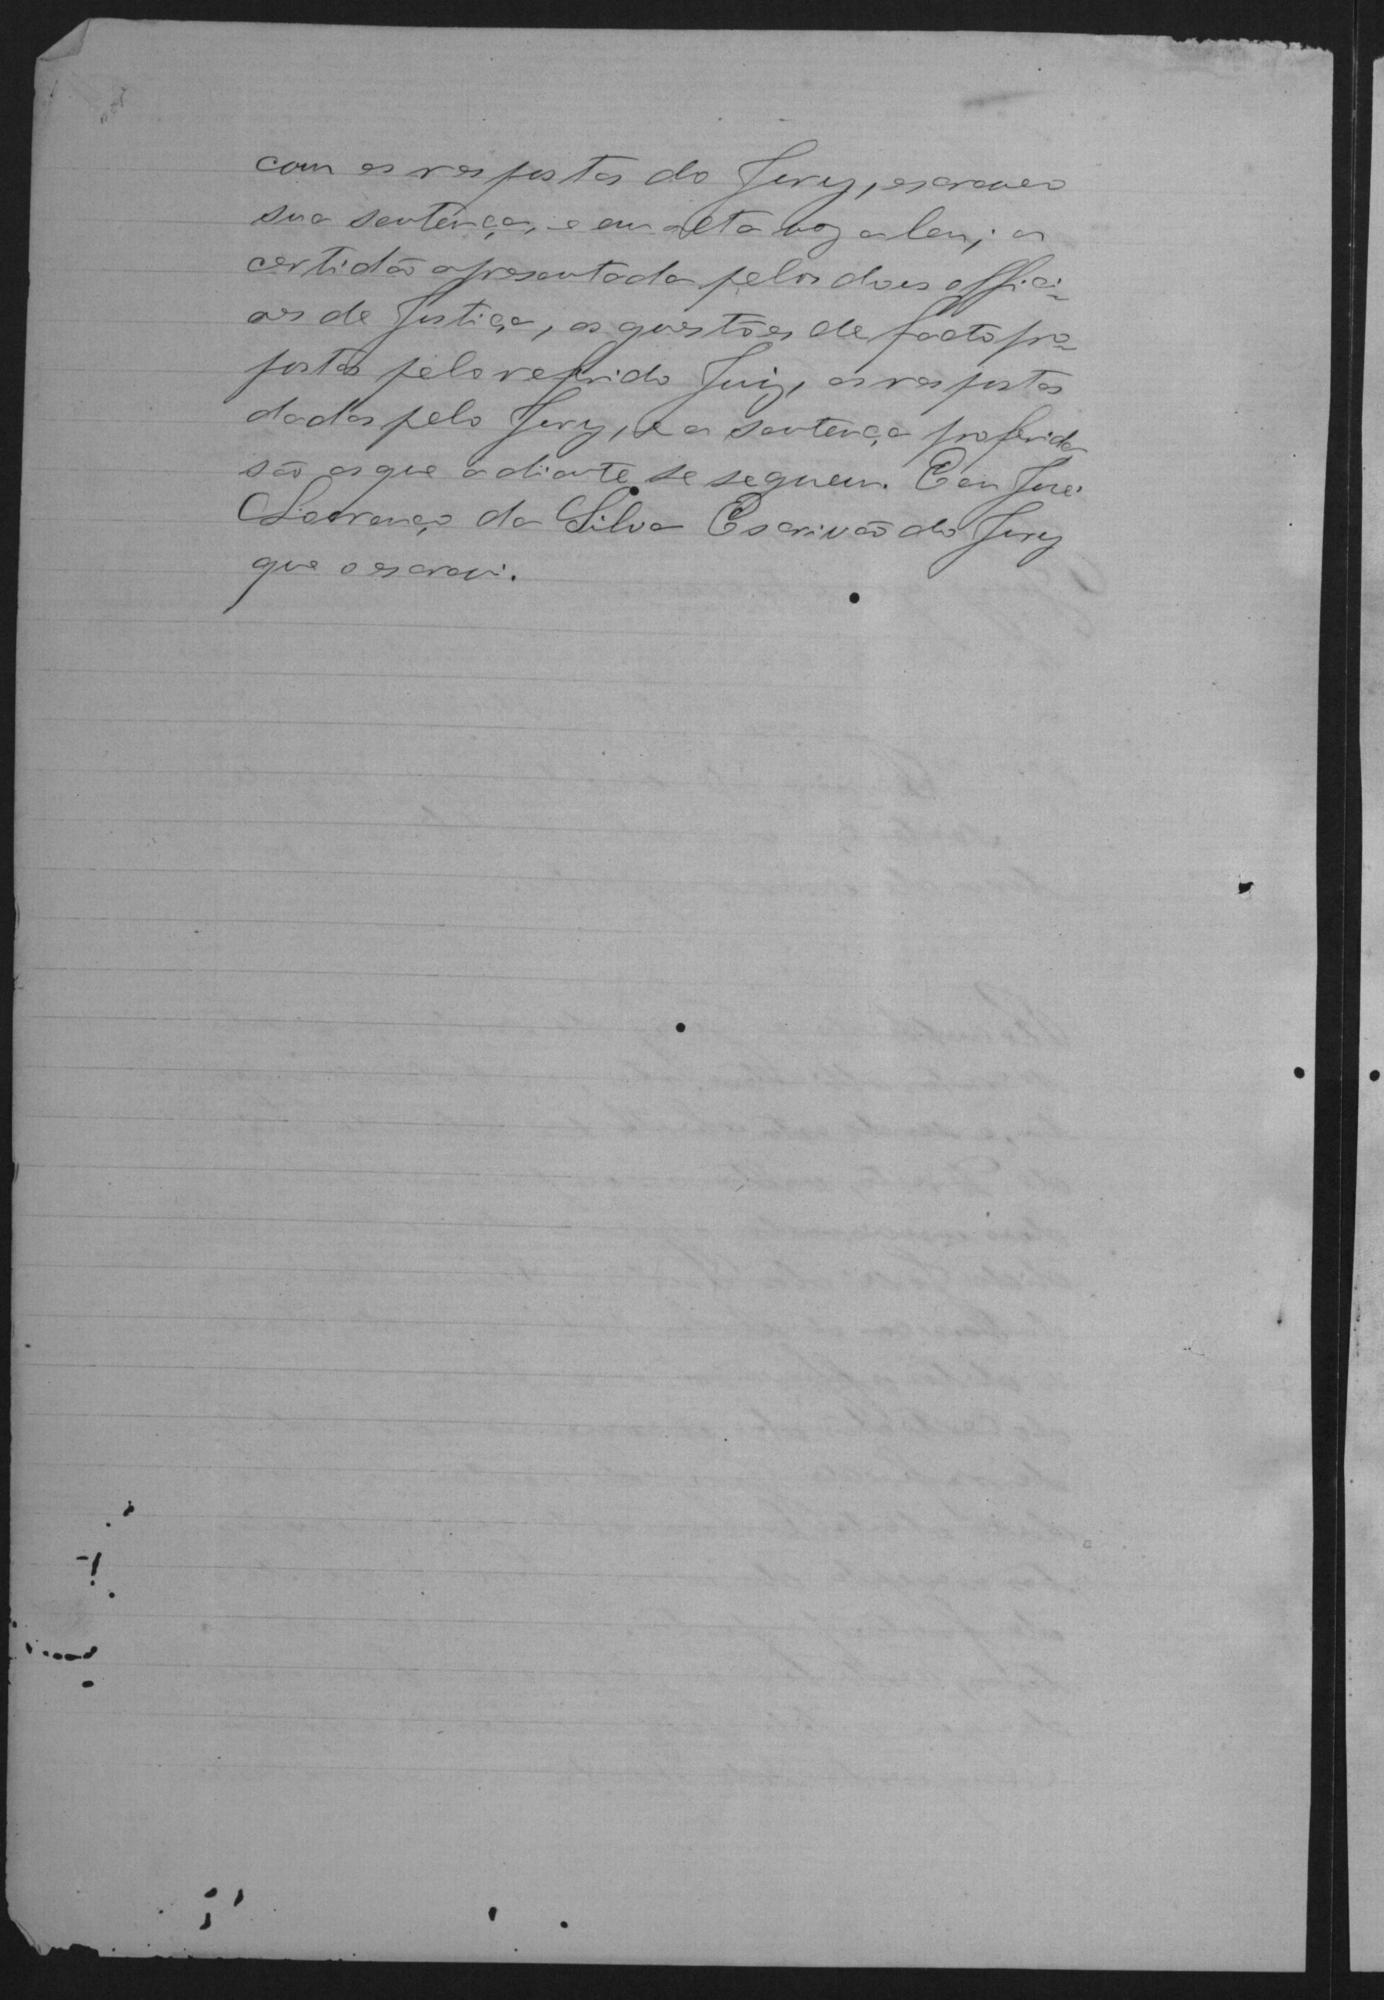 com as respostas do Jury, escreveo
sua sentença, e em alta voz a leu; a
certidão apresentada pelos dous offici-
aes de Justiça, as questões de facto pro-
postas pelo referido Juiz, as respostas
dadas pelo Jury, e a sentença proferida
são as que adiante se seguem. Eu José
Lourenço da Silva Escrivão do Jury
que o escrevi.